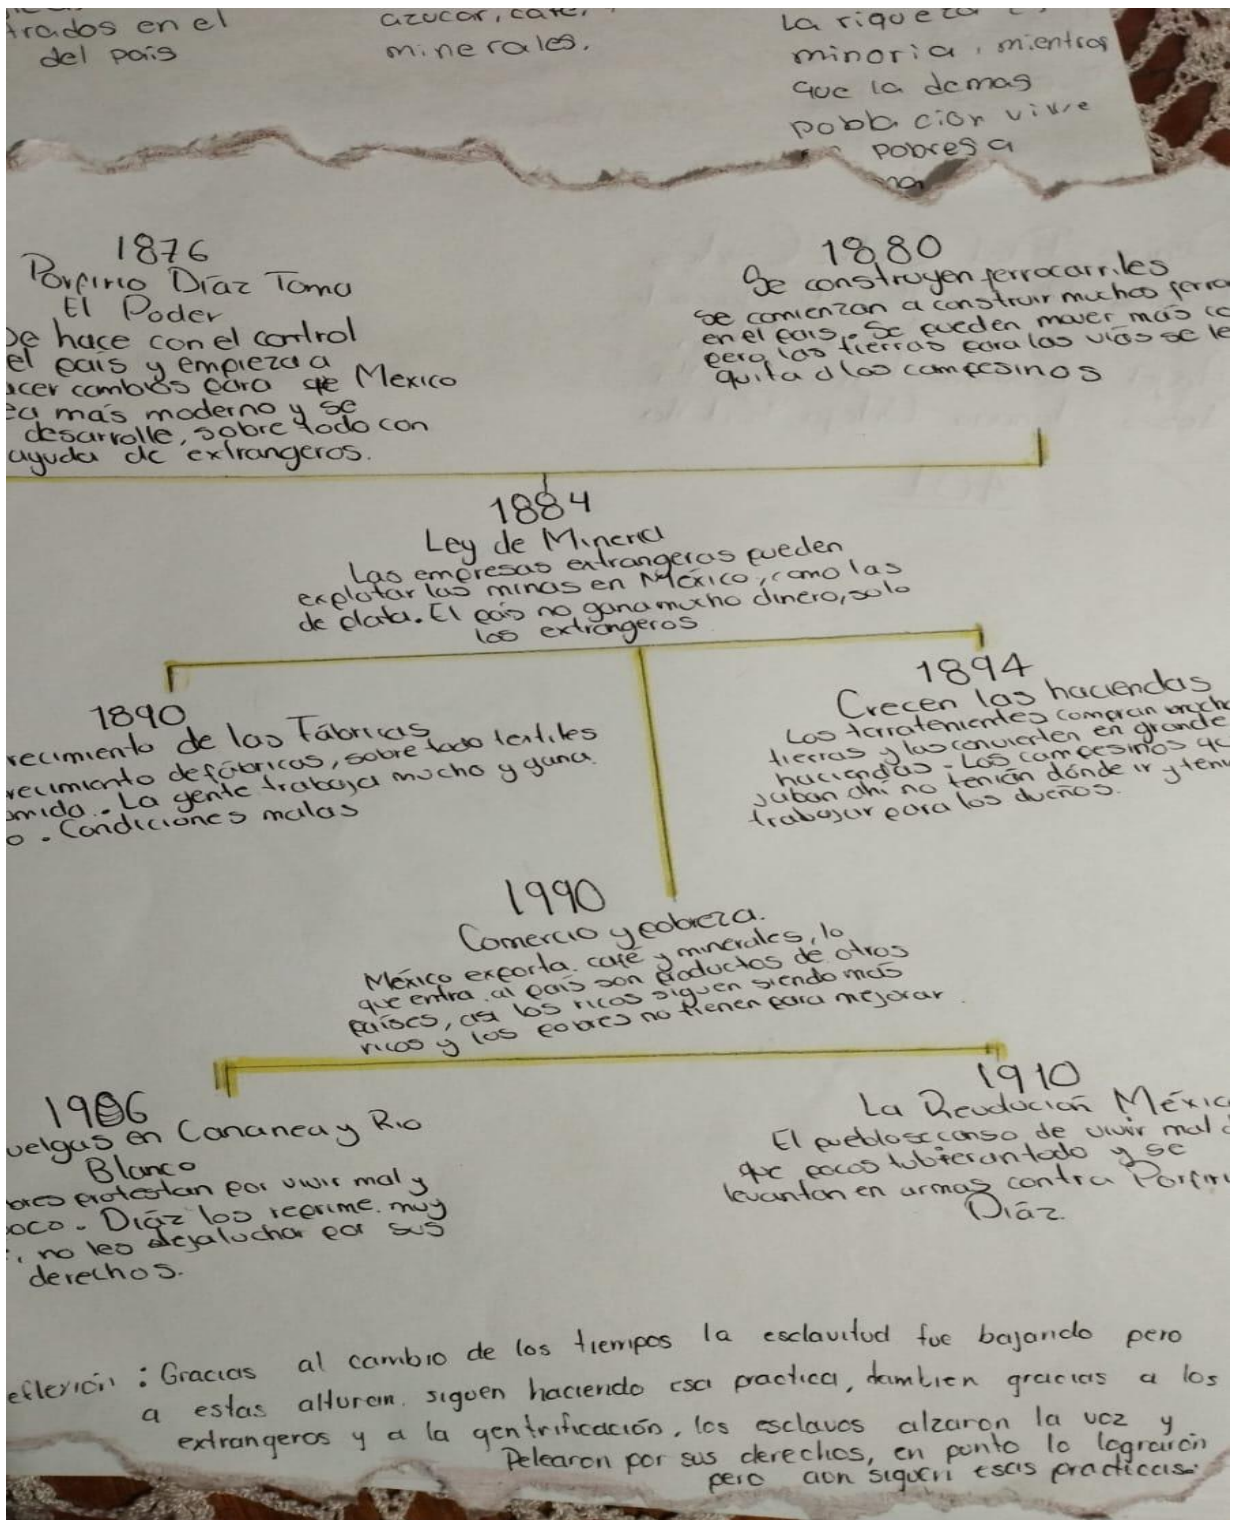 trados en el
del pais
azucar, cafe,
minerales.
La riqueza
minoria, mientras
que la demas
pobbacion vive
pobresa
1876
Porfirio Díaz Toma
El Poder
Se hace con el control
el país y empieza a
acer cambios para qe Mexico
ea más moderno y se
desarrolle, sobre todo con
ayuda de extrangeros.
1880
Se construyen ferrocarriles
se comienzan a construir muchos ferro
en el país. Se pueden mover más co
pero las tierras para las vías se le
quita a los campesinos
1884
Ley de Mineria
Las empresas extrangeras pueden
explotar las minas en México, como las
de plata. El país no gana mucho dinero, solo
los extrangeros
1890
recimiento de las Fábricas
recimiento de fábricas, sobre todo textiles
omida. La gente trabaja mucho y gana
o. Condiciones malas
1894
Crecen las haciendas
Los terratenientes compran mucha
tierras y las convierten en grande
haciendas. Los campesinos qe
jaban ahí no tenían dónde ir y tení
trabajar para los dueños.
1990
Comercio y pobreza.
México exporta café y minerales, lo
que entra al país son productos de otros
países, así los ricos siguen siendo más
ricos y los pobres no tienen para mejorar
1906
uelgas en Cananea y Rio
Blanco
ores protestan por vivir mal y
oco. Díaz los reprime muy
, no les deja luchar por sus
derechos.
1910
La Revolución Méxic
El pueblo se canso de vivir mal
que pocos tubieran todo y se
levantan en armas contra Porfiri
Díaz.
eflexión: Gracias al cambio de los tiempos la esclavitud fue bajando pero
a estas alturam siguen haciendo esa practica, tambien gracias a los
extrangeros y a la gentrificación, los esclavos alzaron la voz y
Pelearon por sus derechos, en punto lo lograron
pero aon siguen esas practicas.